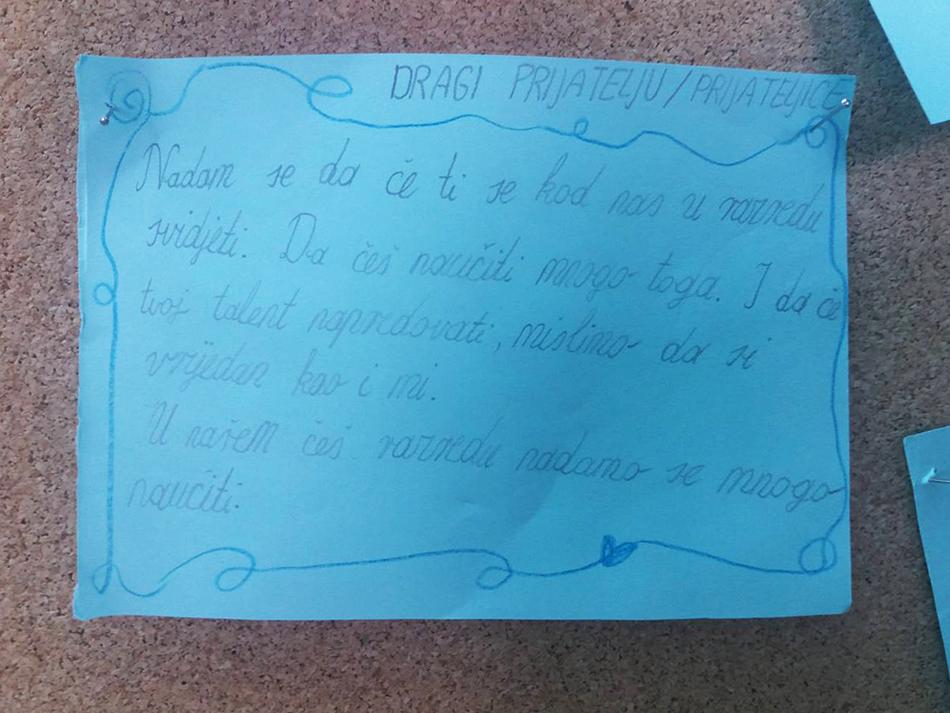 DRAGI PRIJATELJU/PRIJATELJICE
Nadam se da će ti se kod nas u razredu
svidjeti. Da ćeš naučiti mnogo toga. I da će
tvoj talent napredovati, mislimo da si
vrijedan kao i mi.
U našem ćeš razredu nadamo se mnogo
naučiti.